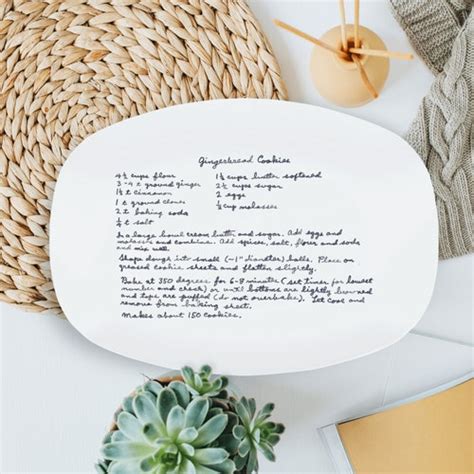 Gingerbread Cookies
4½ cups flour
3-4 t ground ginger
1½ t cinnamon
1 t ground cloves
2 t baking soda
¼ t salt
1½ cups butter softened
2½ cups sugar
2 eggs
½ cup molasses
In a large bowl cream butter and sugar. Add eggs
and molasses and combine. Add spices, salt, flour and soda
and mix well.
Shape dough into small (~1" diameter) balls. Place on
greased cookie sheets and flatten slightly.
Bake at 350 degrees for 6-8 minutes (set timer for lowest
number and check) or until bottoms are lightly browned
and tops are puffed (do not overbake). Let cool and
remove from baking sheet.
Makes about 150 cookies.